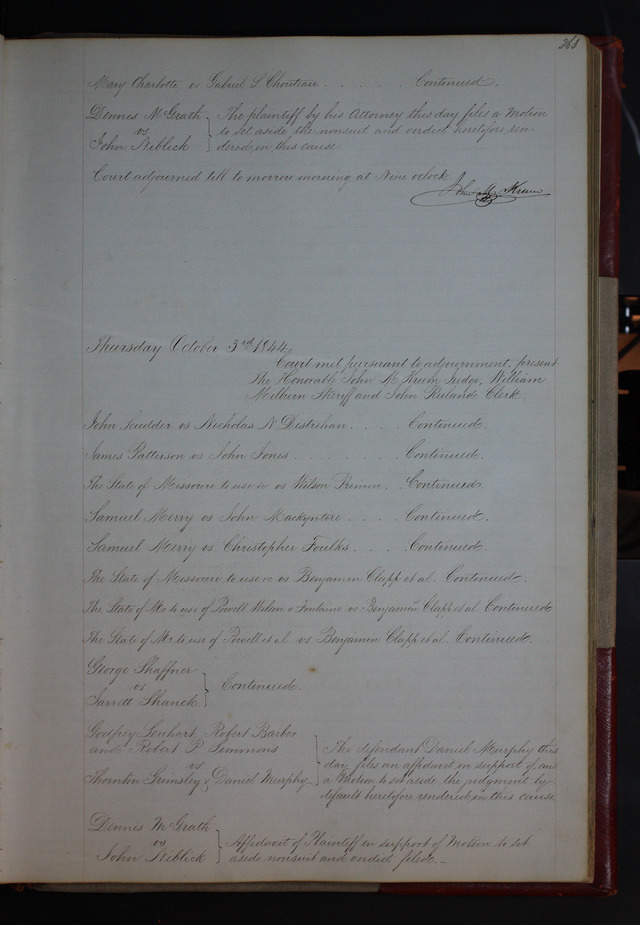 363
Mary Charlotte vs Gabriel S Chouteau . . . . . . Continued.
Dennis McGrath
vs
John Niblick
The plaintiff by his Attorney this day files a Motion
to set aside the nonsuit and verdict heretofore ren
dered in this cause.
Court adjourned till to morrow morning at Nine oclock
John M Krum
Thursday October 3rd 1844,
Court met pursuant to adjournment, present
The Honorable John M Krum Judge, William
Milburn Sheriff and John Ruland Clerk
John Scudder vs Nicholas N Distrehan . . . . Continued.
James Patterson vs John Jones . . . . . . . . Continued.
The State of Missouri to use &c vs Wilson Primm . . Continued.
Samuel Merry vs John Mackyntire . . . . Continued.
Samuel Merry vs Christopher Foulks . . . . Continued.
The State of Missouri to use &c vs Benjamin Clapp et al. Continued.
The State of Mo to use of Powell Wilson & Fontaine vs Benjamin Clapp et al. Continued
The State of Mo to use of Powell et al vs Benjamin Clapp et al. Continued.
George Shaffner
vs
Jarrett Shanck
Continued.
Godfrey Lenhart, Robert Barber
and Robert P Simmons
vs
Thornton Grimsley & Daniel Murphy
The defendant Daniel Murphy this
day files an affidavit in support of and
a Motion to set aside the judgment by
default heretofore rendered in this cause
Dennis McGrath
vs
John Niblick
Affidavit of Plaintiff in support of Motion to set
aside nonsuit and verdict filed. –